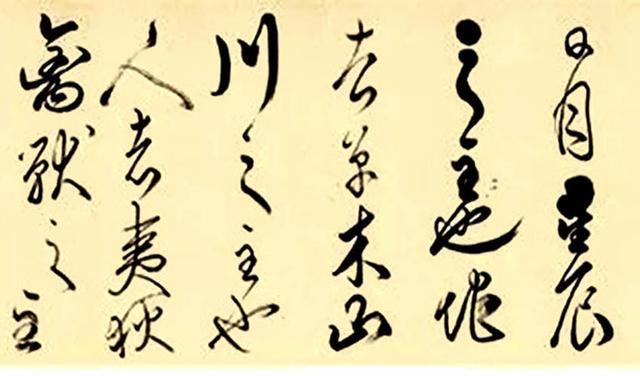 日月星辰
之主也地
者草木山
川之主也
人者夷狄
禽獸之主